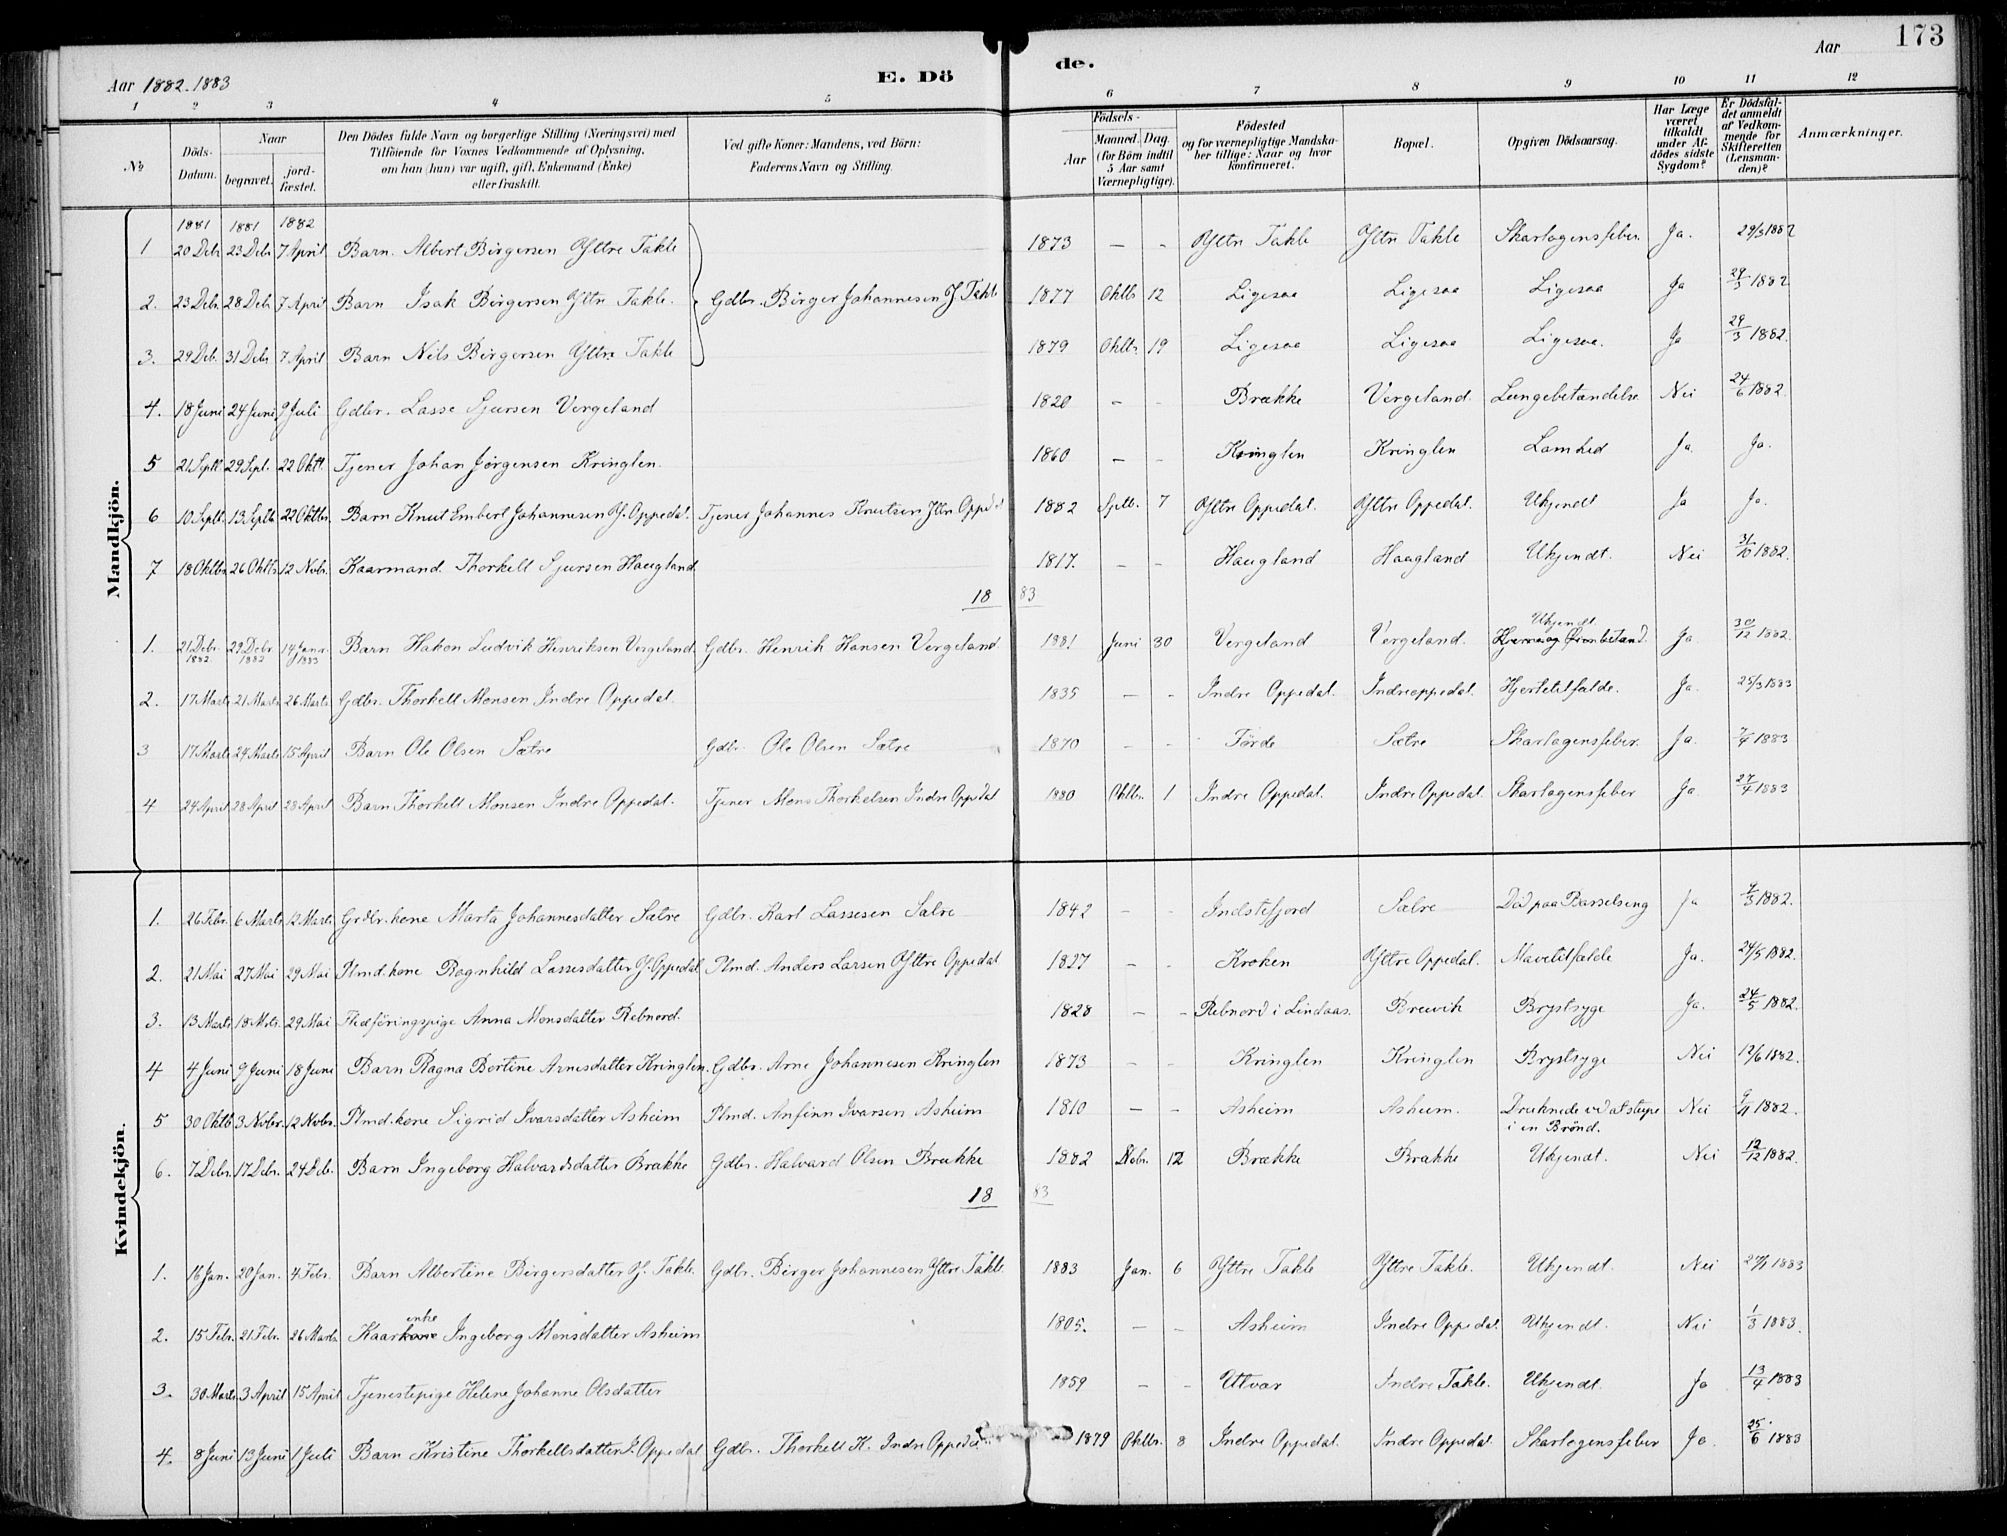 173
Aar 1882-1883 E. Dö de. Aar
1 2 3 4 5 6 7 8 9 10 11 12
No
Döds-Datum.
Naar begravet. jord-fæstet.
Den Dödes fulde Navn og borgerlige Stilling (Næringsvei) med Tilföiende for Voxnes Vedkommende af Oplysning, om han (hun) var ugift, gift, Enkemand (Enke) eller fraskilt.
Ved gifte Koner: Mandens, ved Börn: Faderens Navn og Stilling.
Födsels- Aar Maaned. Dag. (for Börn indtil 5 Aar samt Værnepligtige).
Födested og for værnepligtige Mandska-ber tillige: Naar og hvor konfirmeret.
Bopæl.
Opgiven Dödsaarsag.
Har Læge været tilkaldt under Af-dödes sidste Sygdom?
Er Dödsfal-det anmeldt af Vedkom-mende for Skifteretten (Lensman-den)?
Anmærkninger.
Mandkjön.
1881 1881 1882
1 20 Debr 23 Debr 7 April Barn. Albert Birgersen Yttre Takle 1873 – – Yttre Takle Yttre Takle Skarlagensfeber. Ja. 29/3 1882
2. 23 Debr. 28 Deb. 7 April Barn Isak Birgersen Yttre Takle. Gdbr. Birger Johannesen Y Takle 1877 Oktb 12 Ligesaa Ligesaa Ligesaa Ja 29/3 1882
3. 29 Deb. 31 Debr 7 April Barn Nils Birgersen Yttre Takle 1879 Oktbr. 19 Ligesaa Ligesaa Ligesaa. Ja 29/3 1882.
4. 18 Juni 24 Juni 9 Juli Gdbr. Lasse Sjursen Vergeland 1820 – – Brække Vergeland. Lungebetændelse Nei 24/6 1882.
5 21 Septr 29 Sept. 22 Oktr Tjener Johan Jørgensen Kringlen. 1860 – – Kringlen Kringlen Lamhed Ja Ja.
6 10 Septr. 13 Septb. 22 Oktbr. Barn Knut Embert Johannesen Y. Oppedal. Tjener Johannes Knutsen Yttre Oppedal 1882 Septb. 7 Yttre Oppedal. Yttre Oppedal. Ukjendt Ja Ja.
7 18 Oktbr. 26 Oktb. 12 Nvbr. Kaarmand. Thorkell Sjursen Haugland 1817. – – Haugland Haugland Ukjendt. Nei 31/10 1882.
18 83
1. 21 Debr. 1882 29 Debr 1882 14 Janr. 1883 Barn Hakon Ludvik Henriksen Vergeland Gdbr. Henrik Hansen Vergeland 1881 Juni 30 Vergeland Vergeland. Ukjendt. Ja 30/12 1882.
2. 17 Marts 21 Marts 26 Marts Gdbr. Thorkell Monsen Indre Oppedal. 1835 – – Indre Oppedal. Indreoppedal. Hjertetilfælde. Ja. 25/3 1883
3 17 Marts 24 Marts 15 April Barn Ole Olsen Sætre Gdbr. Ole Olsen Sætre 1870 – – Førde Sætre Skarlagensfeber. Ja. 7/4 1883
4 24 April 28 April 28 April Barn Thorkell Monsen Indre Oppedal. Tjener Mons Thorkelsen Indre Oppedal 1880 Oktbr. 1 Indre Oppedal. Indre Oppedal. Skarlagensfeber Ja 27/4 1883
Kvindekjön.
1. 26 Febr. 6 Marts 12 Marts Grdbr. kone Marta Johannesdatter Sætre Gdbr. Karl Lassesen Sætre 1842 – – Indstefjord Sætre Død paa Barselseng Ja 9/3 1882.
2. 21 Mai 27 Mai 29 Mai Plmd. kone Ragnhild Lassesdatter Y. Oppedal Plmd. Anders Larsen Yttre Oppedal 1827 – – Kroken Yttre Oppedal. Mavetilfælde Ja. 24/5 1882.
3. 13 Marts 18 Mrts. 29 Mai Fledføringspige Anna Monsdatter Rebnord. 1828 – – Rebnord i Lindaas. Brævik Brystsyge Ja. 24/5 1882.
4 4 Juni 9 Juni 18 Juni Barn Ragna Bertine Arnesdatter Kringlen. Gdbr. Arne Johannesen Kringlen 1873 – – Kringlen Kringlen Brystsyge Nei 12/6 1882.
5 30 Oktb 3 Nvbr. 12 Nvbr. Plmd. kone Sigrid Ivarsdatter Asheim Plmd. Anfinn Ivarsen Asheim 1810 – – Asheim Asheim. Druknede ved at støpe i en Brønd. Nei 9/11 1882.
6. 7 Debr. 17 Debr. 24 Deb. Barn Ingeborg Halvardsdatter Brække Gdbr. Halvard Olsen Brække 1882 Nvbr. 12 Brække Brække Ukjendt. Nei 12/12 1882.
18 83
1. 16 Jan. 20 Jan. 4 Febr. Barn Albertine Birgersdatter Y. Takle. Gdbr. Birger Johannesen Yttre Takle 1883 Jan. 6 Yttre Takle Yttre Takle. Ukjendt. Nei 27/1 1883
2. 15 Febr. 21 Febr. 26 Marts Kaarkone enke Ingeborg Monsdatter Asheim 1805. – – Asheim Indre Oppedal. Ukjendt. Nei 1/3 1883.
3. 30 Marts 3 April 15 April Tjenestepige Helene Johanne Olsdatter 1859 – – Utvær Indre Takle. Ukjendt. Ja 13/4 1883
4. 8 Juni 13 Juni 1 Juli Barn Kristine Thorkellsdatter I. Oppedal Gdbr. Thorkell K. Indre Oppedal 1879 Oktbr. 8 Indre Oppedal. Indre Oppedal. Skarlagensfeber Ja. 25/6 1883